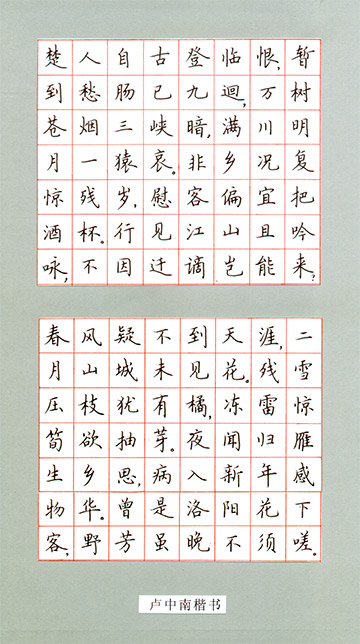 楚人自古登临恨,暂
到愁肠已九迴,万树
苍烟三峡暗,满川明
月一猿哀。非乡况复
惊残岁,慰客偏宜把
酒杯。行见江山且吟
咏,不因迁谪岂能来?
春风疑不到天涯,二
月山城未见花。残雪
压枝犹有橘,冻雷惊
筍欲抽芽。夜闻归雁
生乡思,病入新年感
物华。曾是洛阳花下
客,野芳虽晚不须嗟。
卢中南楷书